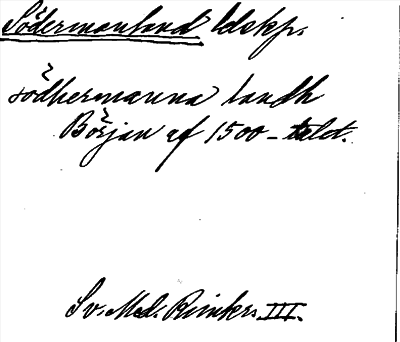 Södermanland ldskp.
södhermanna landh
Början af 1500-talet.
Sv. Med. Rimkr. III.